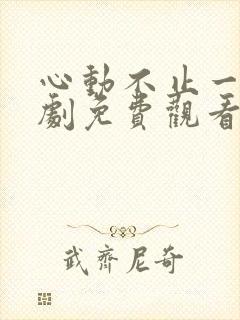 心動不止一
劇免費觀看
武齊尼奇